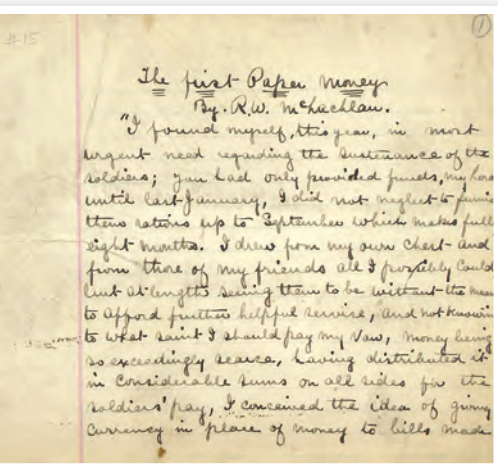 #15
1
The first Paper Money
By. R.W. McLachlan.
"I found myself, this year, in most
urgent need regarding the sustenance of the
soldiers; you had only provided funds, my lord
until last January, I did not neglect to furnis
them rations up to September which makes full
eight months. I drew from my own chest and
from those of my friends all I possibly could
but at length seeing them to be without the mean
to afford further helpful service, and not knowin
to what saint I should pay my vow, money being
so exceedingly scarce, having distributed it
in considerable sums on all sides for the
soldiers' pay, I conceived the idea of giving
currency in place of money to bills made